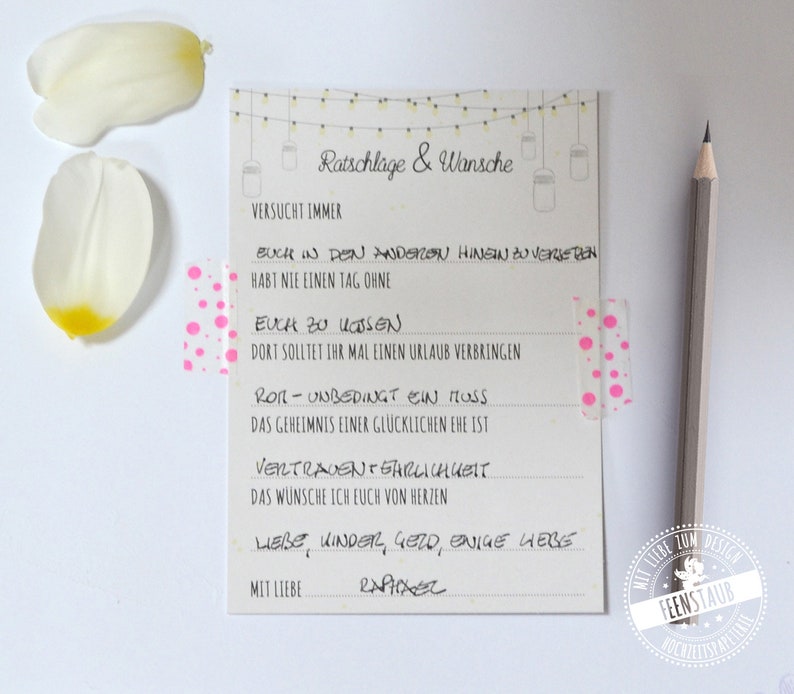 Ratschläge & Wünsche
VERSUCHT IMMER
EUCH IN DEN ANDEREN HINEIN ZU VERSETZEN
HABT NIE EINEN TAG OHNE
EUCH ZU KÜSSEN
DORT SOLLTET IHR MAL EINEN URLAUB VERBRINGEN
ROM - UNBEDINGT EIN MUSS
DAS GEHEIMNIS EINER GLÜCKLICHEN EHE IST
VERTRAUEN + EHRLICHKEIT
DAS WÜNSCHE ICH EUCH VON HERZEN
LIEBE, KINDER, GELD, EWIGE LIEBE
MIT LIEBE RAPHAEL
MIT LIEBE ZUM DESIGN
FEENSTAUB
HOCHZEITSPAPETERIE